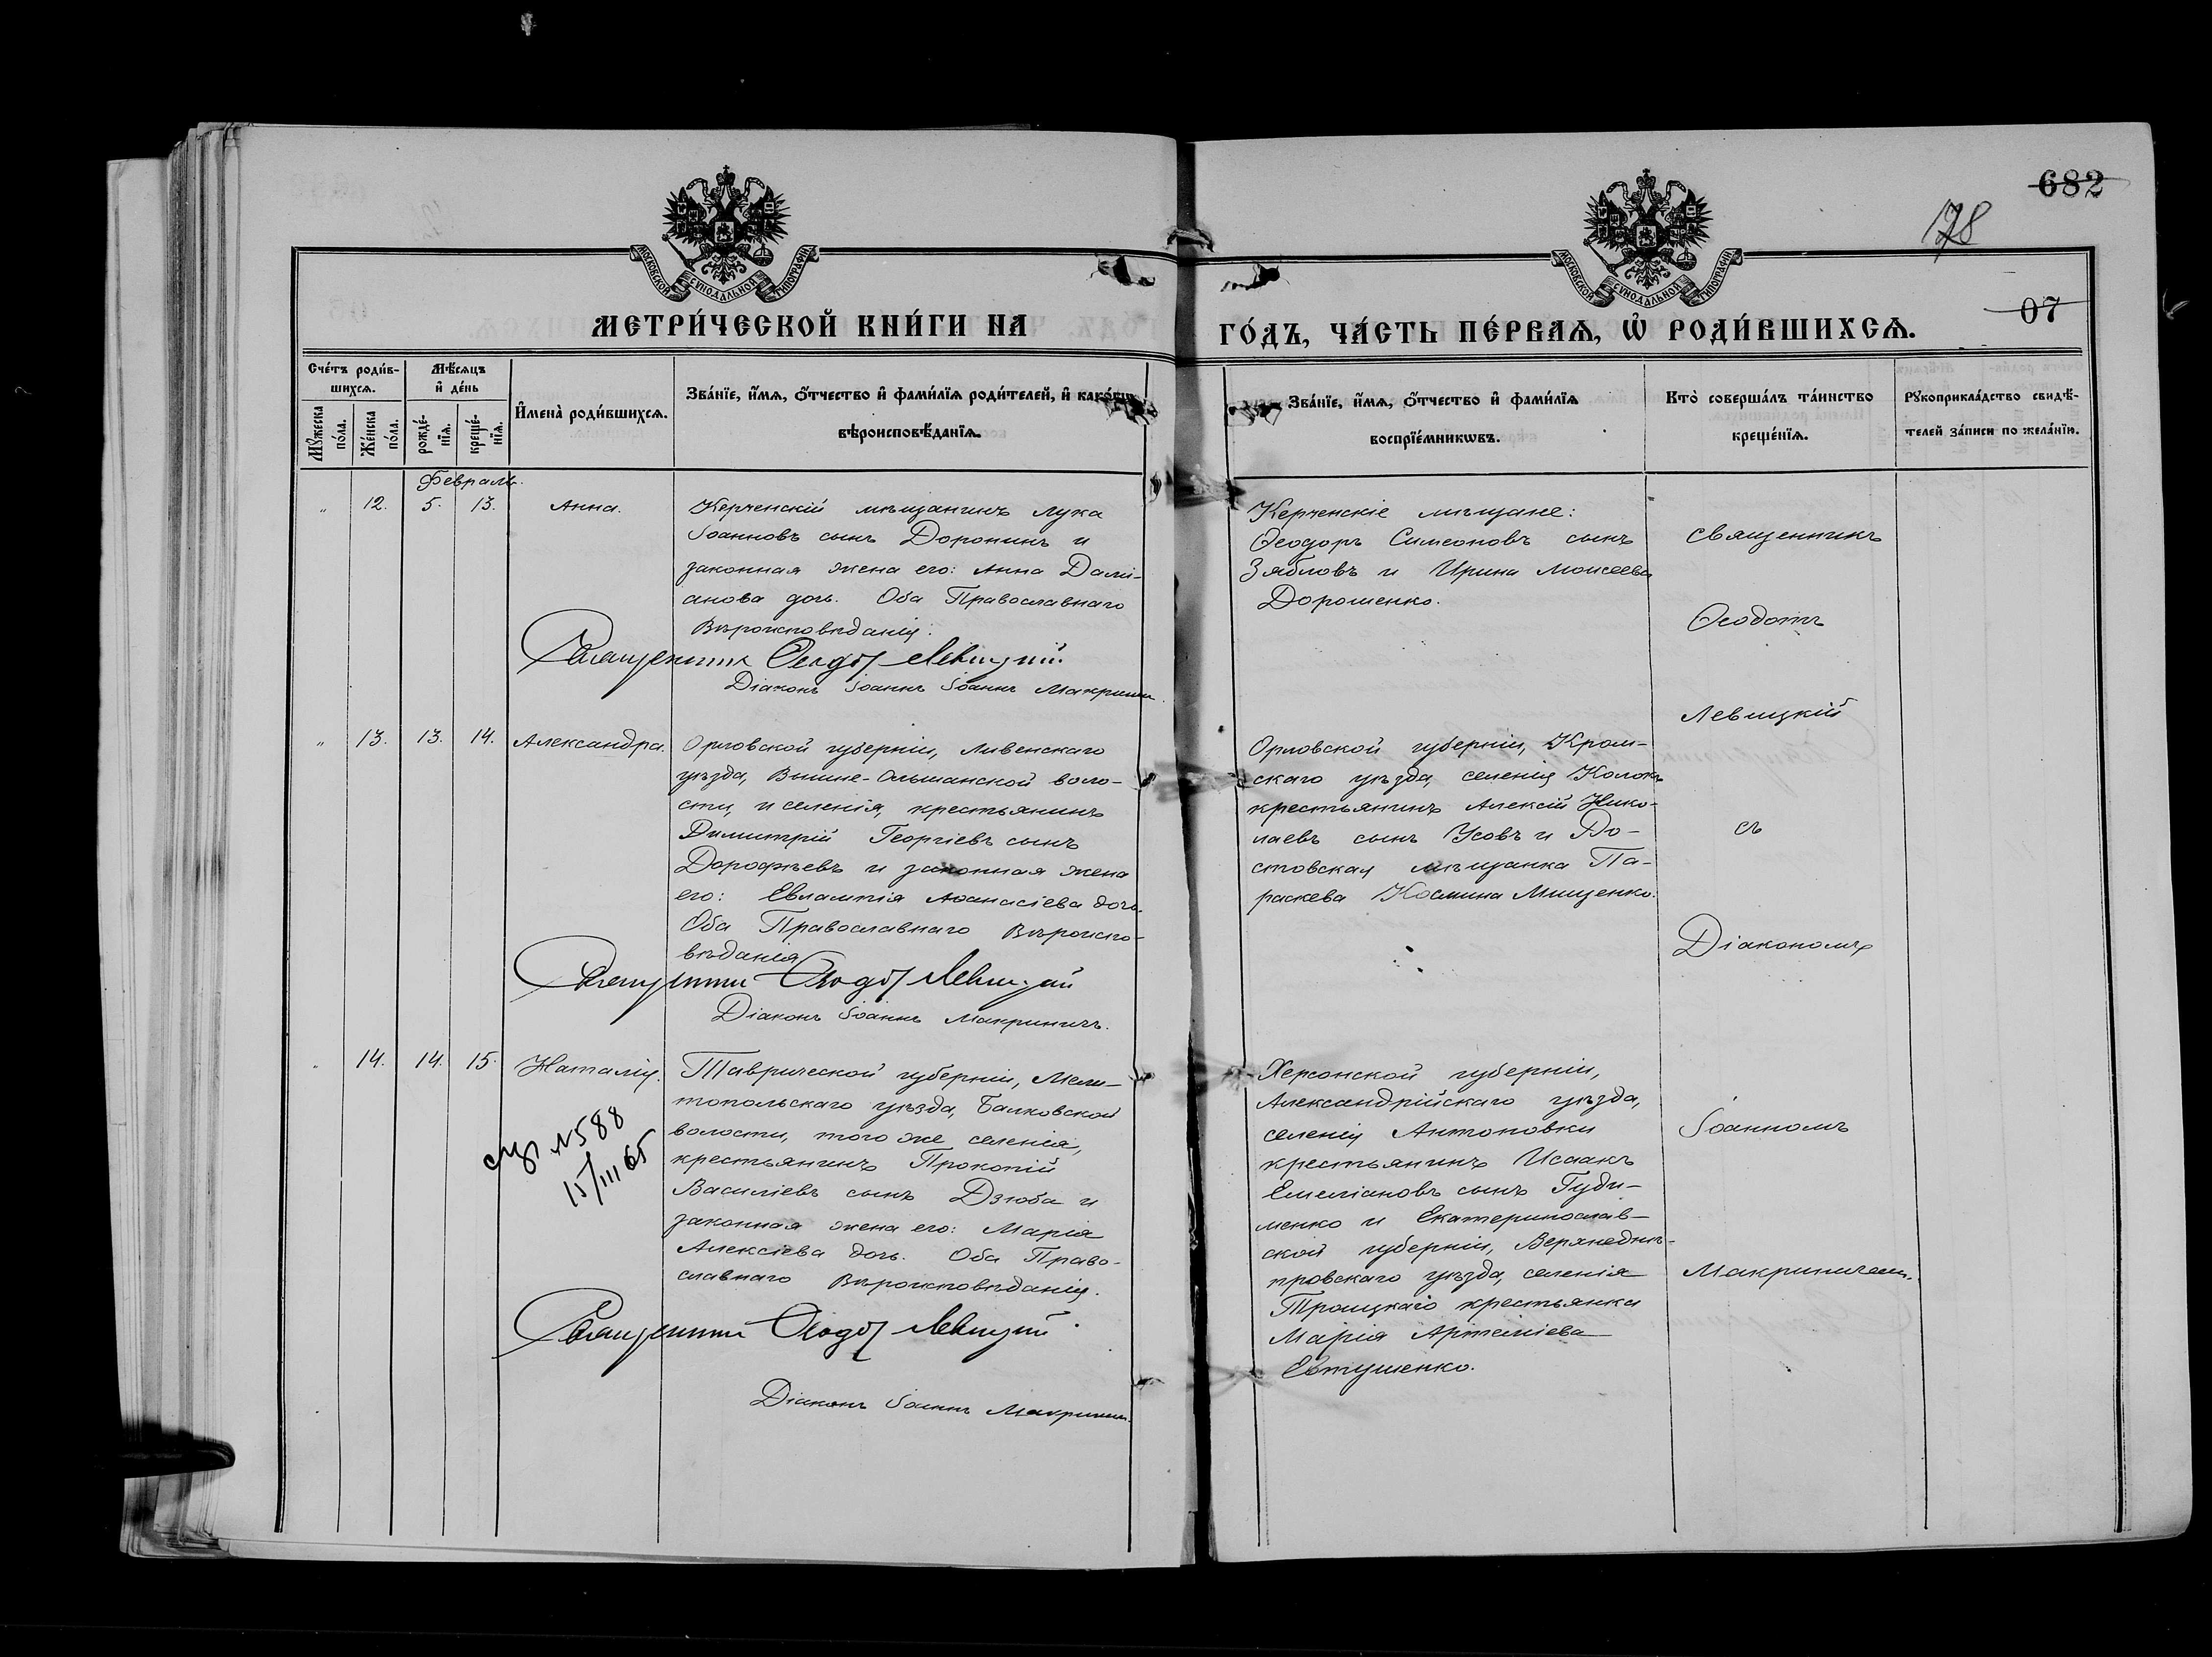 682
178
07
МОСКОВСКОЙ СѴНОДАЛЬНОЙ ТИПОГРАФІИ
МОСКОВСКОЙ СѴНОДАЛЬНОЙ ТИПОГРАФІИ
МЕТРИ́ЧЕСКОЙ КНИ́ГИ НА
ГО́ДЪ, ЧА́СТЬ ПЕ́РВАѦ, Ѡ҆ РОДИ́ВШИХСѦ.
Сче́тъ роди́в-
шихсѧ.
Мѣ́сѧцъ
и҆ де́нь
Мꙋ́жеска
по́ла.
Же́нска
по́ла.
рожде́-
нїѧ.
креще́-
нїѧ.
И҆мена̀ роди́вшихсѧ.
Зва́нїе, и҆́мѧ, ѻ҆́тчество и҆ фами́лїѧ роди́телей, и҆ како́гѡ
вѣроисповѣ́данїѧ.
Зва́нїе, и҆́мѧ, ѻ҆́тчество и҆ фами́лїѧ
воспрїе́мникѡвъ.
Кто̀ соверша́лъ та́инство
креще́нїѧ.
Рꙋкоприкла́дство свидѣ́-
телей за́писи по жела́нїю.
Февраль.
" 12. 5. 13. Анна.
Керченскій мѣщанинъ Лука
Іоанновъ сынъ Доронинъ и
законная жена его: Анна Дамі-
анова дочь. Оба Православнаго
Вѣроисповѣданія.
Священникъ Ѳеодотъ Левицкій
Діаконъ Іоаннъ Іоаннъ Макринич.
Керченскіе мѣщане:
Ѳеодоръ Симеоновъ сынъ
Зябловъ и Ирина Моисеева
Дорошенко.
Священникъ
Ѳеодотъ
Левицкій
съ
Діакономъ
Іоанномъ
Макриничемъ.
" 13. 13. 14. Александра.
Орловской губерніи, Ливенскаго
уѣзда, Вышне-Ольшанской воло-
сти, и селенія, крестьянинъ
Димитрій Георгіевъ сынъ
Дорофѣевъ и законная жена
его: Евлампія Аѳанасіева дочь.
Оба Православнаго Вѣроиспо-
вѣданія
Священникъ Ѳеодотъ Левицкій
Діаконъ Іоаннъ Макриничъ.
Орловской губерніи, Кром-
скаго уѣзда, селенія Колокъ
крестьянинъ Алексій Нико-
лаевъ сынъ Усовъ и Ро-
стовская мѣщанка Па-
раскева Космина Мищенко.
" 14. 14. 15. Наталія.
№588
15/III 65
Таврической губерніи, Мели-
топольскаго уѣзда, Балковской
волости, того же селенія,
крестьянинъ Прокопій
Василіевъ сынъ Дзюба и
законная жена его: Марія
Алексіева дочь. Оба Право-
славнаго Вѣроисповѣданія.
Священникъ Ѳеодотъ Левицкій
Діаконъ Іоаннъ Макринич.
Херсонской губерніи,
Александрійскаго уѣзда,
селенія Антоновки
крестьянинъ Исаакъ
Емеліановъ сынъ Гуди-
менко и Екатеринослав-
ской губерніи, Верхнеднѣ-
провскаго уѣзда, селенія
Троицкаго крестьянка
Марія Артеміева
Евтушенко.